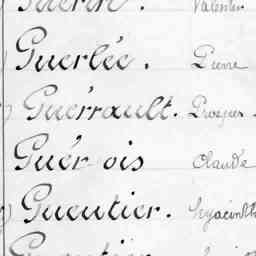 Guerin. Valentin
Guerlée. Pierre
Guérrault. Prosper.
Guér ois Claude
Gueutier. hyacinth